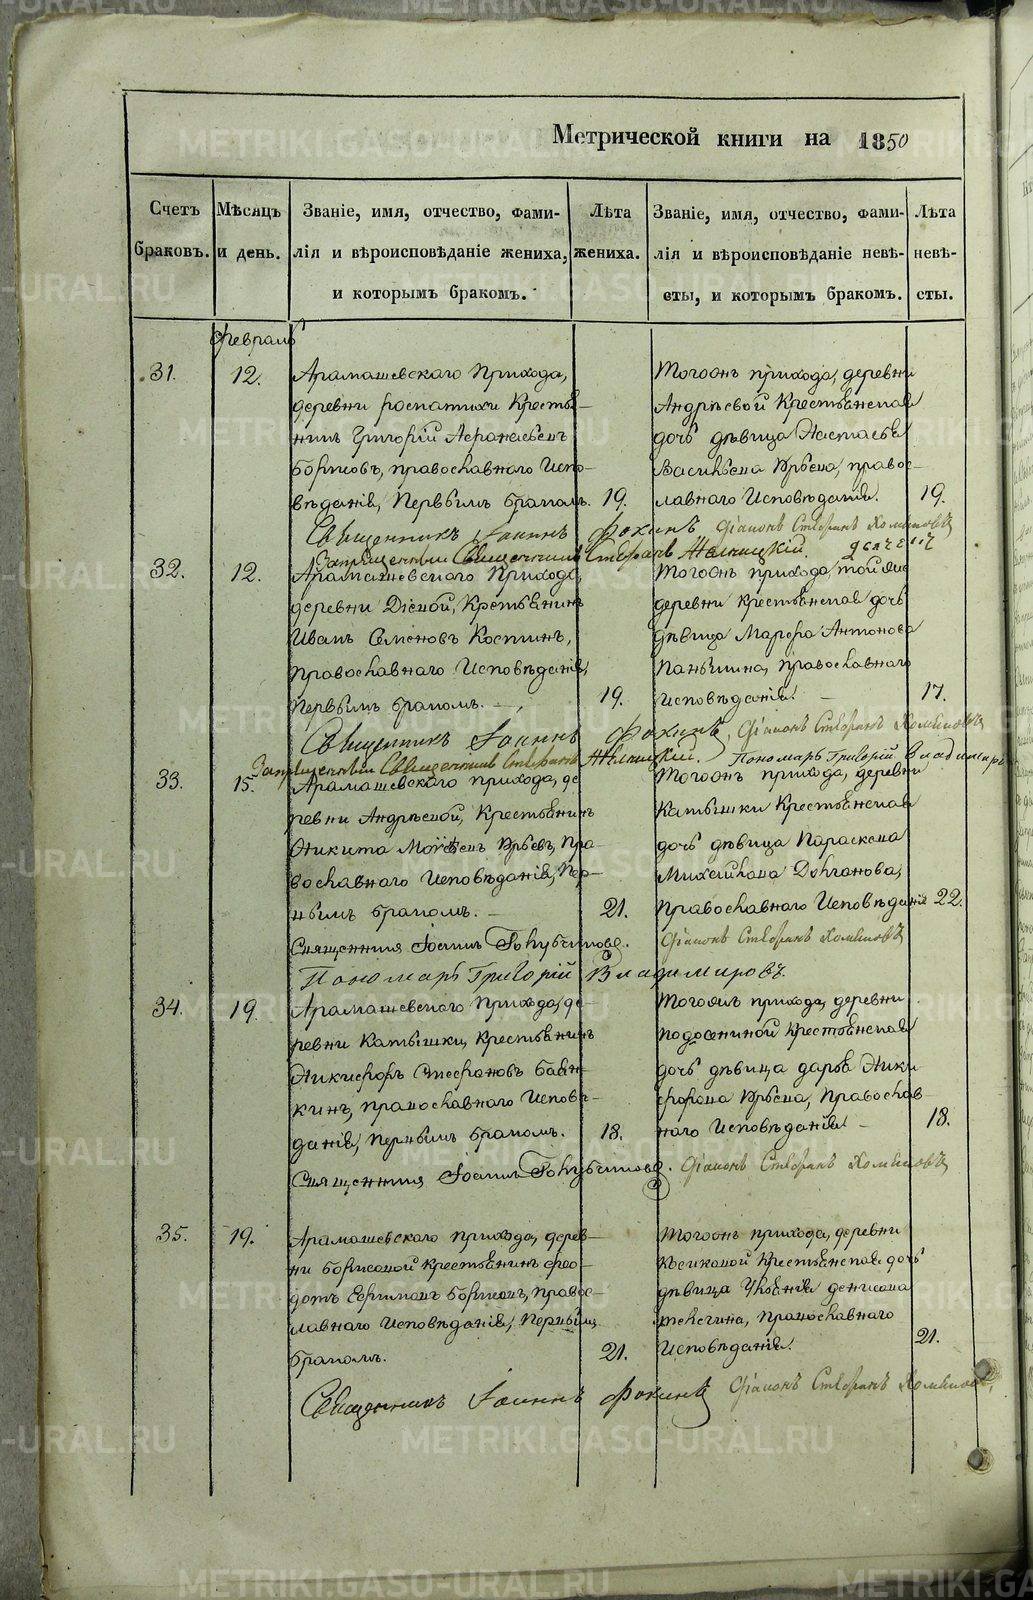 Метрической книги на 1850
Счетъ браковъ.
Мѣсяцъ и день.
Званіе, имя, отчество, фами-
лія и вѣроисповѣданіе жениха,
и которымъ бракомъ.
Лѣта жениха.
Званіе, имя, отчество, фами-
лія и вѣроисповѣданіе невѣ-
сты, и которымъ бракомъ.
Лѣта невѣ-
сты.
Февраль
31.
12.
Арамашевскаго Прихода,
деревни Роспатихи Крестья-
нинъ Григорій Афанасьевъ
Борисовъ, православнаго Испо-
вѣданія, Первымъ бракомъ.
19.
Тогожъ прихода, деревни
Андрѣевой Крестьянская
дочь дѣвица Настасья
Васильева Юрьева, право-
славнаго Исповѣданія.
19.
Священникъ Іоаннъ Фокинъ Діаконъ Стефанъ Хомяковъ
Запрещенный Священникъ Стефанъ
32.
12.
Арамашевскаго Прихода,
деревни Діевой, Крестьянинъ
Иванъ Семеновъ Костинъ,
Православнаго Исповѣданія,
Первымъ бракомъ.
19.
Тогожъ прихода, той же
деревни крестьянская дочь
дѣвица Марфа Антонова
Паньшина, Православнаго
Исповѣданія.
17.
Священникъ Іоаннъ Фокинъ, Діаконъ Стефанъ Хомяковъ
Запрещенный Священникъ Стефанъ Пономарь Григорій Владимиръ
33.
15.
Арамашевскаго прихода, де-
ревни Андрѣевой, Крестьянинъ
Никита Моѵсеевъ Юрьевъ, Пра-
вославнаго Исповѣданія, Пер-
вымъ бракомъ.
21.
Тогожъ прихода, деревни
Катышки Крестьянская
дочь дѣвица Параскева
Михайлова Долганова,
Православнаго Исповѣданія
22.
Священникъ Іоаннъ Голубчиковъ. Діаконъ Стефанъ Хомяковъ
Пономарь Григорій Владимировъ
34.
19.
Арамашевскаго Прихода, де-
ревни Катышки, Крестьянинъ
Никифоръ Стефановъ Бабин-
кинъ, православнаго Исповѣ-
данія, Первымъ бракомъ.
18.
Тогожъ прихода, деревни
Подосениной Крестьянская
дочь дѣвица Дарья Ники
форова Юрьева, Православ-
наго Исповѣданія
18.
Священникъ Іоаннъ Голубчиковъ. Діаконъ Стефанъ Хомяковъ
35.
19.
Арамашевскаго прихода, дерев-
ни Борисовой крестьянинъ Фео-
дотъ Ефимовъ Борисовъ, Право-
славнаго Исповѣданія, Первымъ
бракомъ.
21.
Тогожъ прихода, деревни
Косиковой Крестьянская дочь
дѣвица Ульянія Денисова
Телегина, Православнаго
Исповѣданія.
21.
Священникъ Іоаннъ Фокинъ Діаконъ Стефанъ Хомяковъ
METRIKI.GASO-URAL.RU